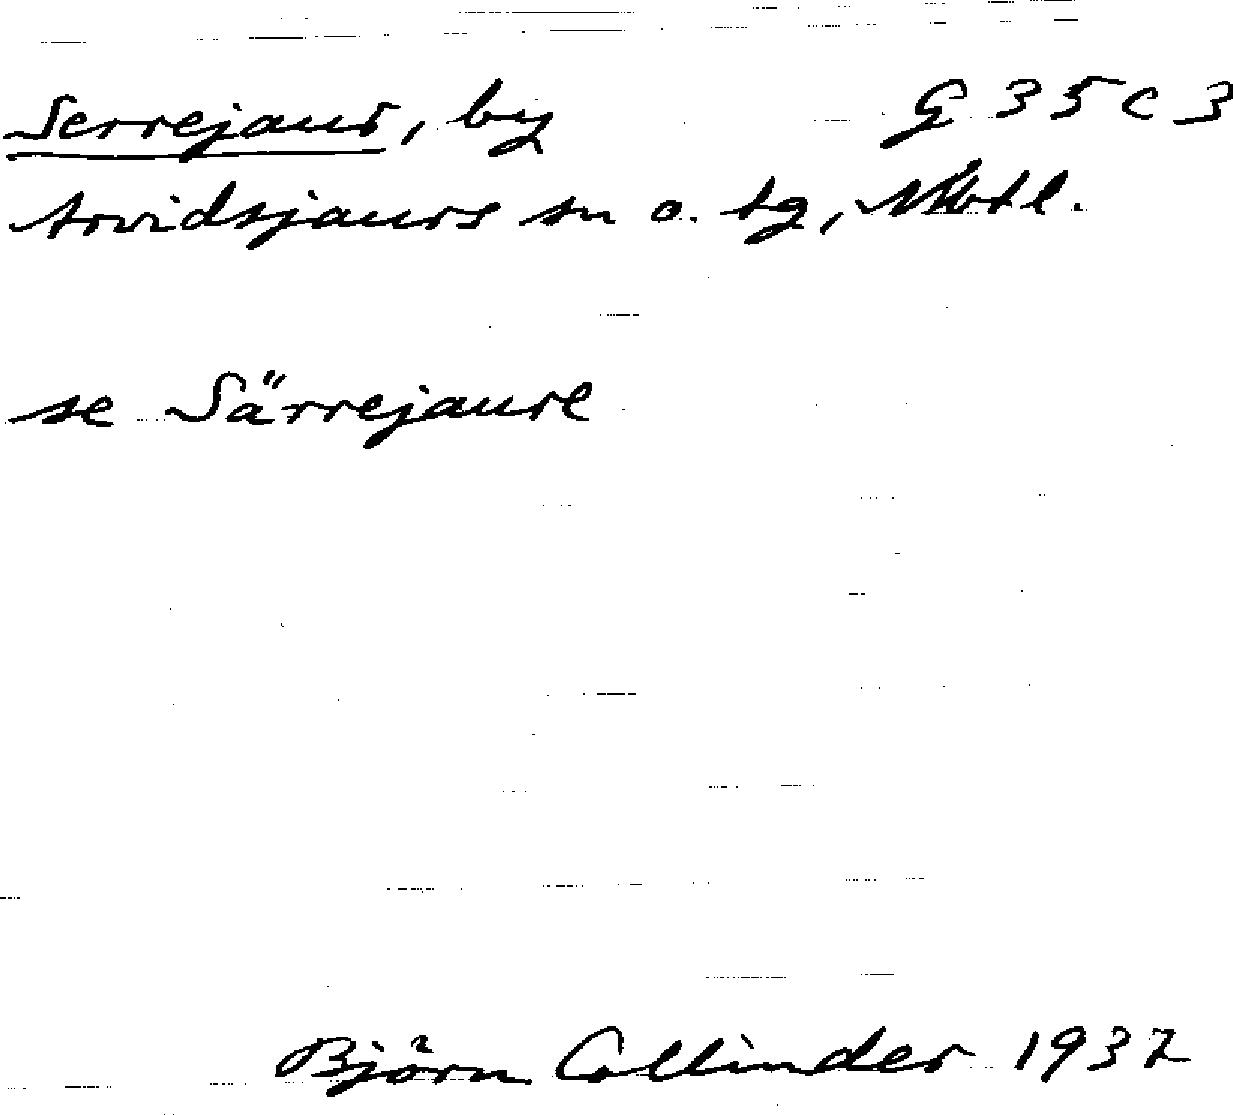 Serrejaur, by G 35 C 3
Arvidsjaurs sn o. tg, Nbtl.
se Särrejaure
Björn Collinder 1937